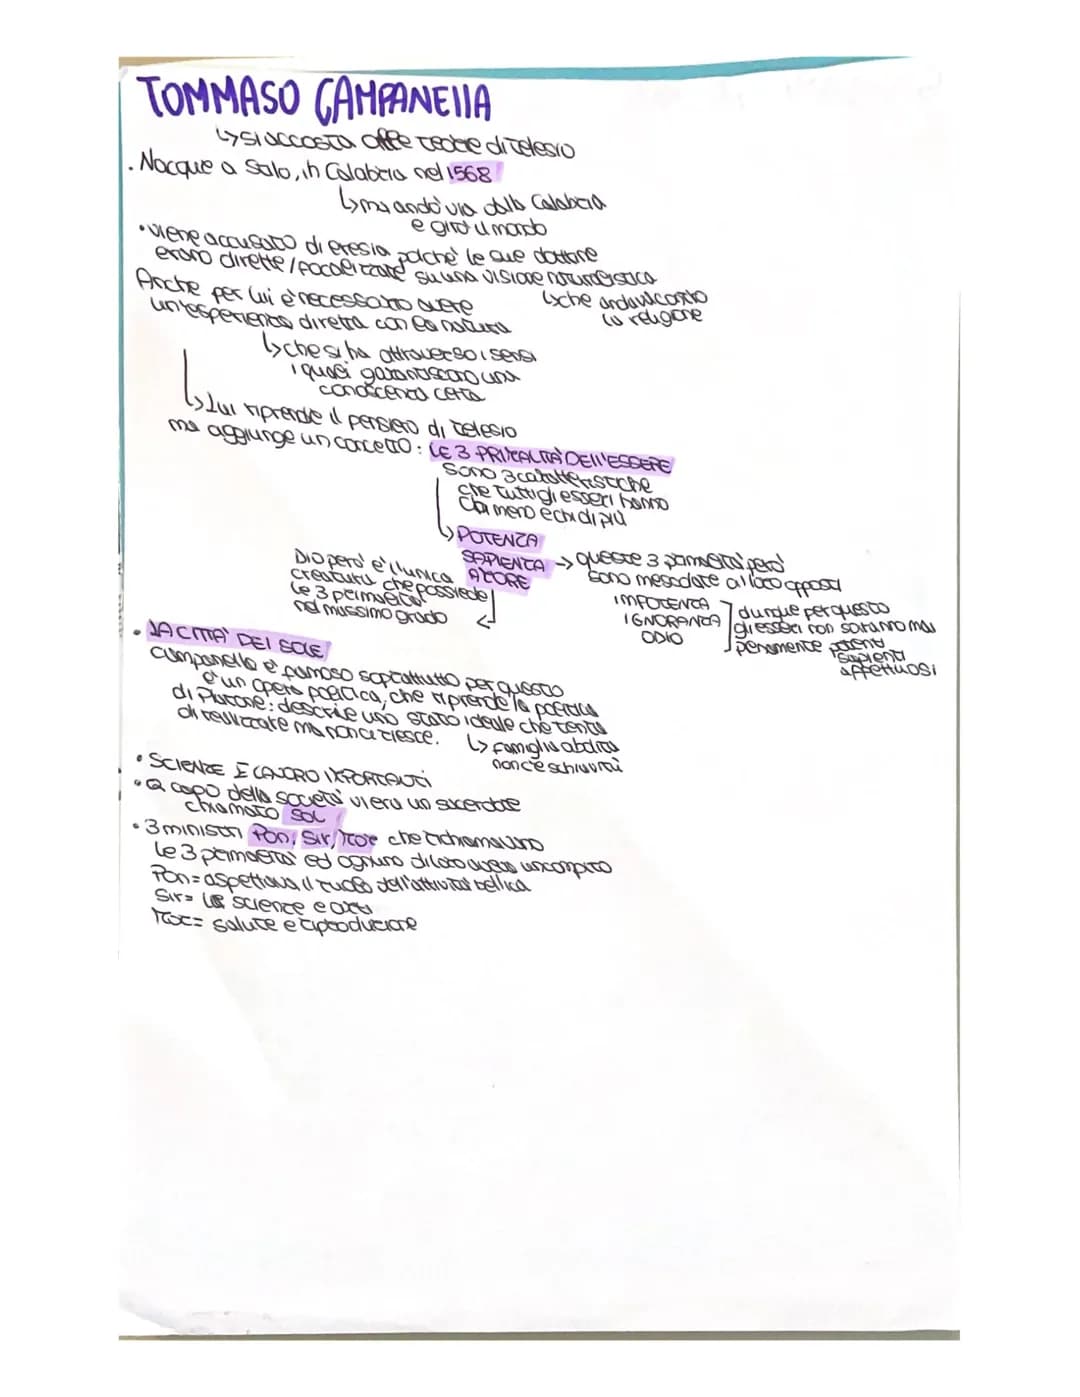 TOMMASO CAMPANELLA
↳ si accosta alle teorie di Telesio
· Nacque a Stalo, in Calabria nel 1568
↳ ma andò via dalla Calabria
e girò il mondo
• viene accusato di eresia poiché le sue dottrine
erano dirette/focalizzate su una visione naturalistica
↳ che andava contro
la religione
Anche per lui è necessario avere
un'esperienza diretta con la natura
↳ che si ha attraverso i sensi
i quali garantiscono una
conoscenza certa
↳ Lui riprende il pensiero di Telesio
ma aggiunge un concetto: LE 3 PRIMALITÀ DELL'ESSERE
Sono 3 caratteristiche
che tutti gli esseri hanno
chi meno e chi di più
↳ POTENZA
SAPIENZA → queste 3 primalità però
AMORE
sono mescolate ai loro opposti
IMPOTENZA
IGNORANZA
ODIO
dunque per questo
gli esseri non saranno mai
pienamente potenti
sapienti
affettuosi
Dio però è l'unica
creatura che possiede
le 3 primalità
nel massimo grado
• LA CITTÀ DEL SOLE
Campanella è famoso soprattutto per questo
è un opera politica, che riprende la politica
di Platone: descrive uno stato ideale che tenta
di realizzare ma non ci riesce.
↳ famiglia abolita
non c'è schiavitù
• SCIENZE E LAVORO IMPORTANTI
• a capo della società vi era un sacerdote
chiamato SOL
• 3 ministri Pon, Sir, Mor che richiamavano
le 3 primalità ed ognuno di loro aveva un compito
Pon= aspettava il ruolo dell'attività bellica
Sir= le scienze e arti
Mor= salute e riproduzione